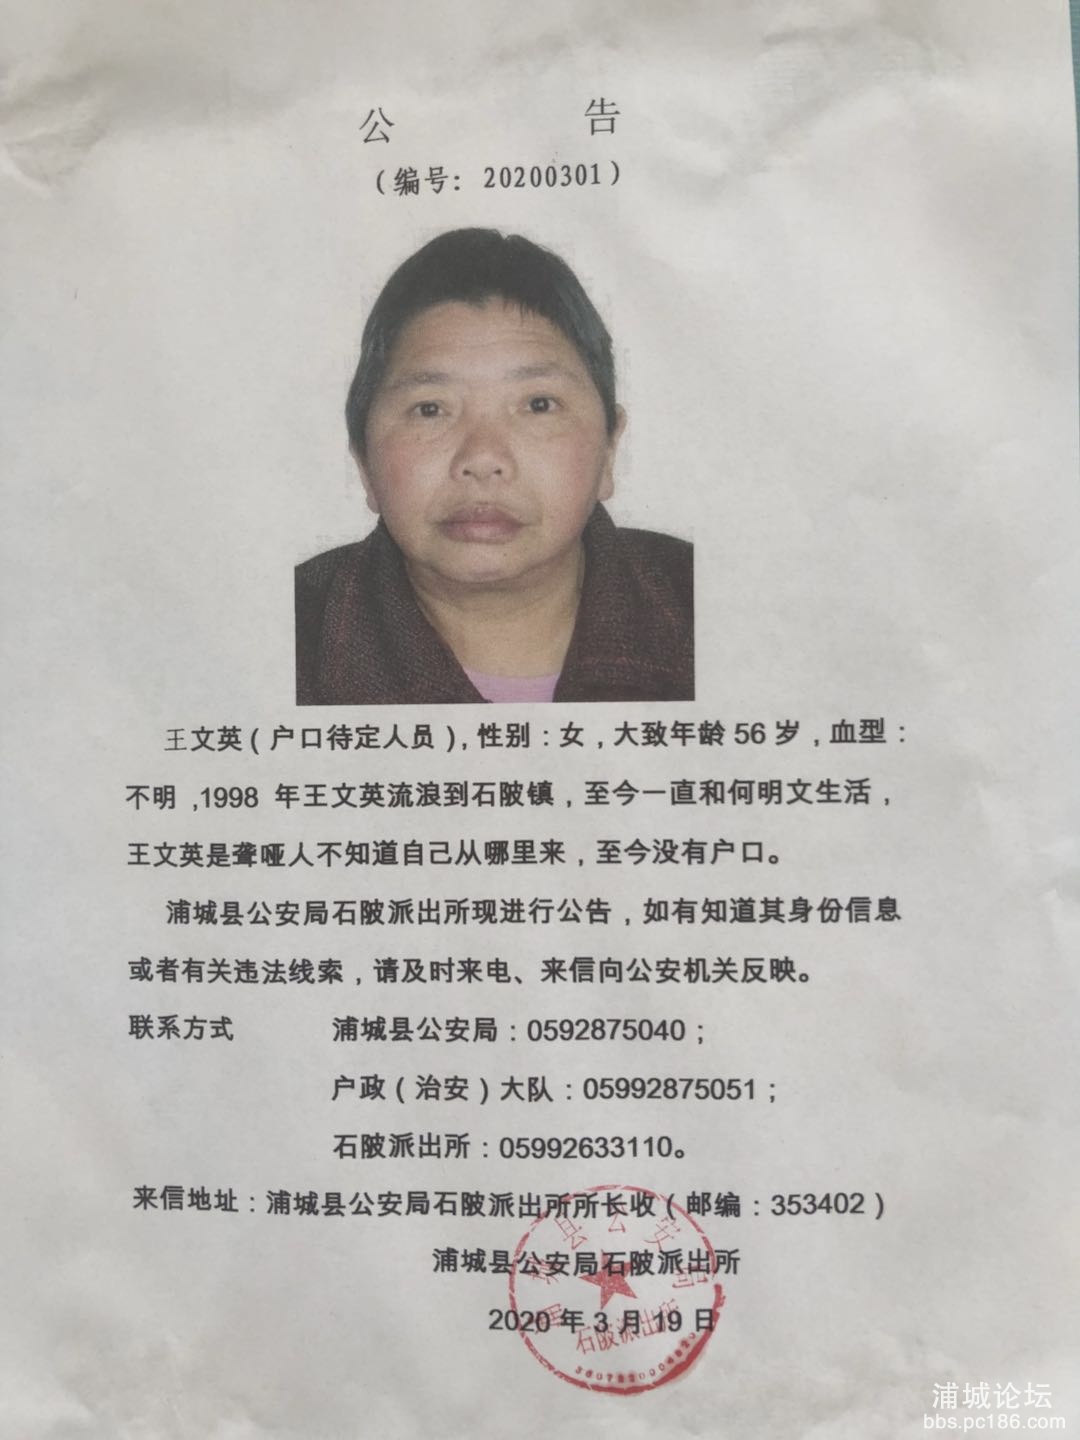 公 告
（编号：20200301）
王文英（户口待定人员），性别：女，大致年龄 56 岁，血型：
不明 ,1998 年王文英流浪到石陂镇，至今一直和何明文生活，
王文英是聋哑人不知道自己从哪里来，至今没有户口。
浦城县公安局石陂派出所现进行公告，如有知道其身份信息
或者有关违法线索，请及时来电、来信向公安机关反映。
联系方式 浦城县公安局：0592875040；
户政（治安）大队：05992875051；
石陂派出所：05992633110。
来信地址：浦城县公安局石陂派出所所长收（邮编：353402）
浦城县公安局石陂派出所
2020 年 3 月 19 日
浦城县公安局
石陂派出所
浦城论坛
bbs.pc186.com